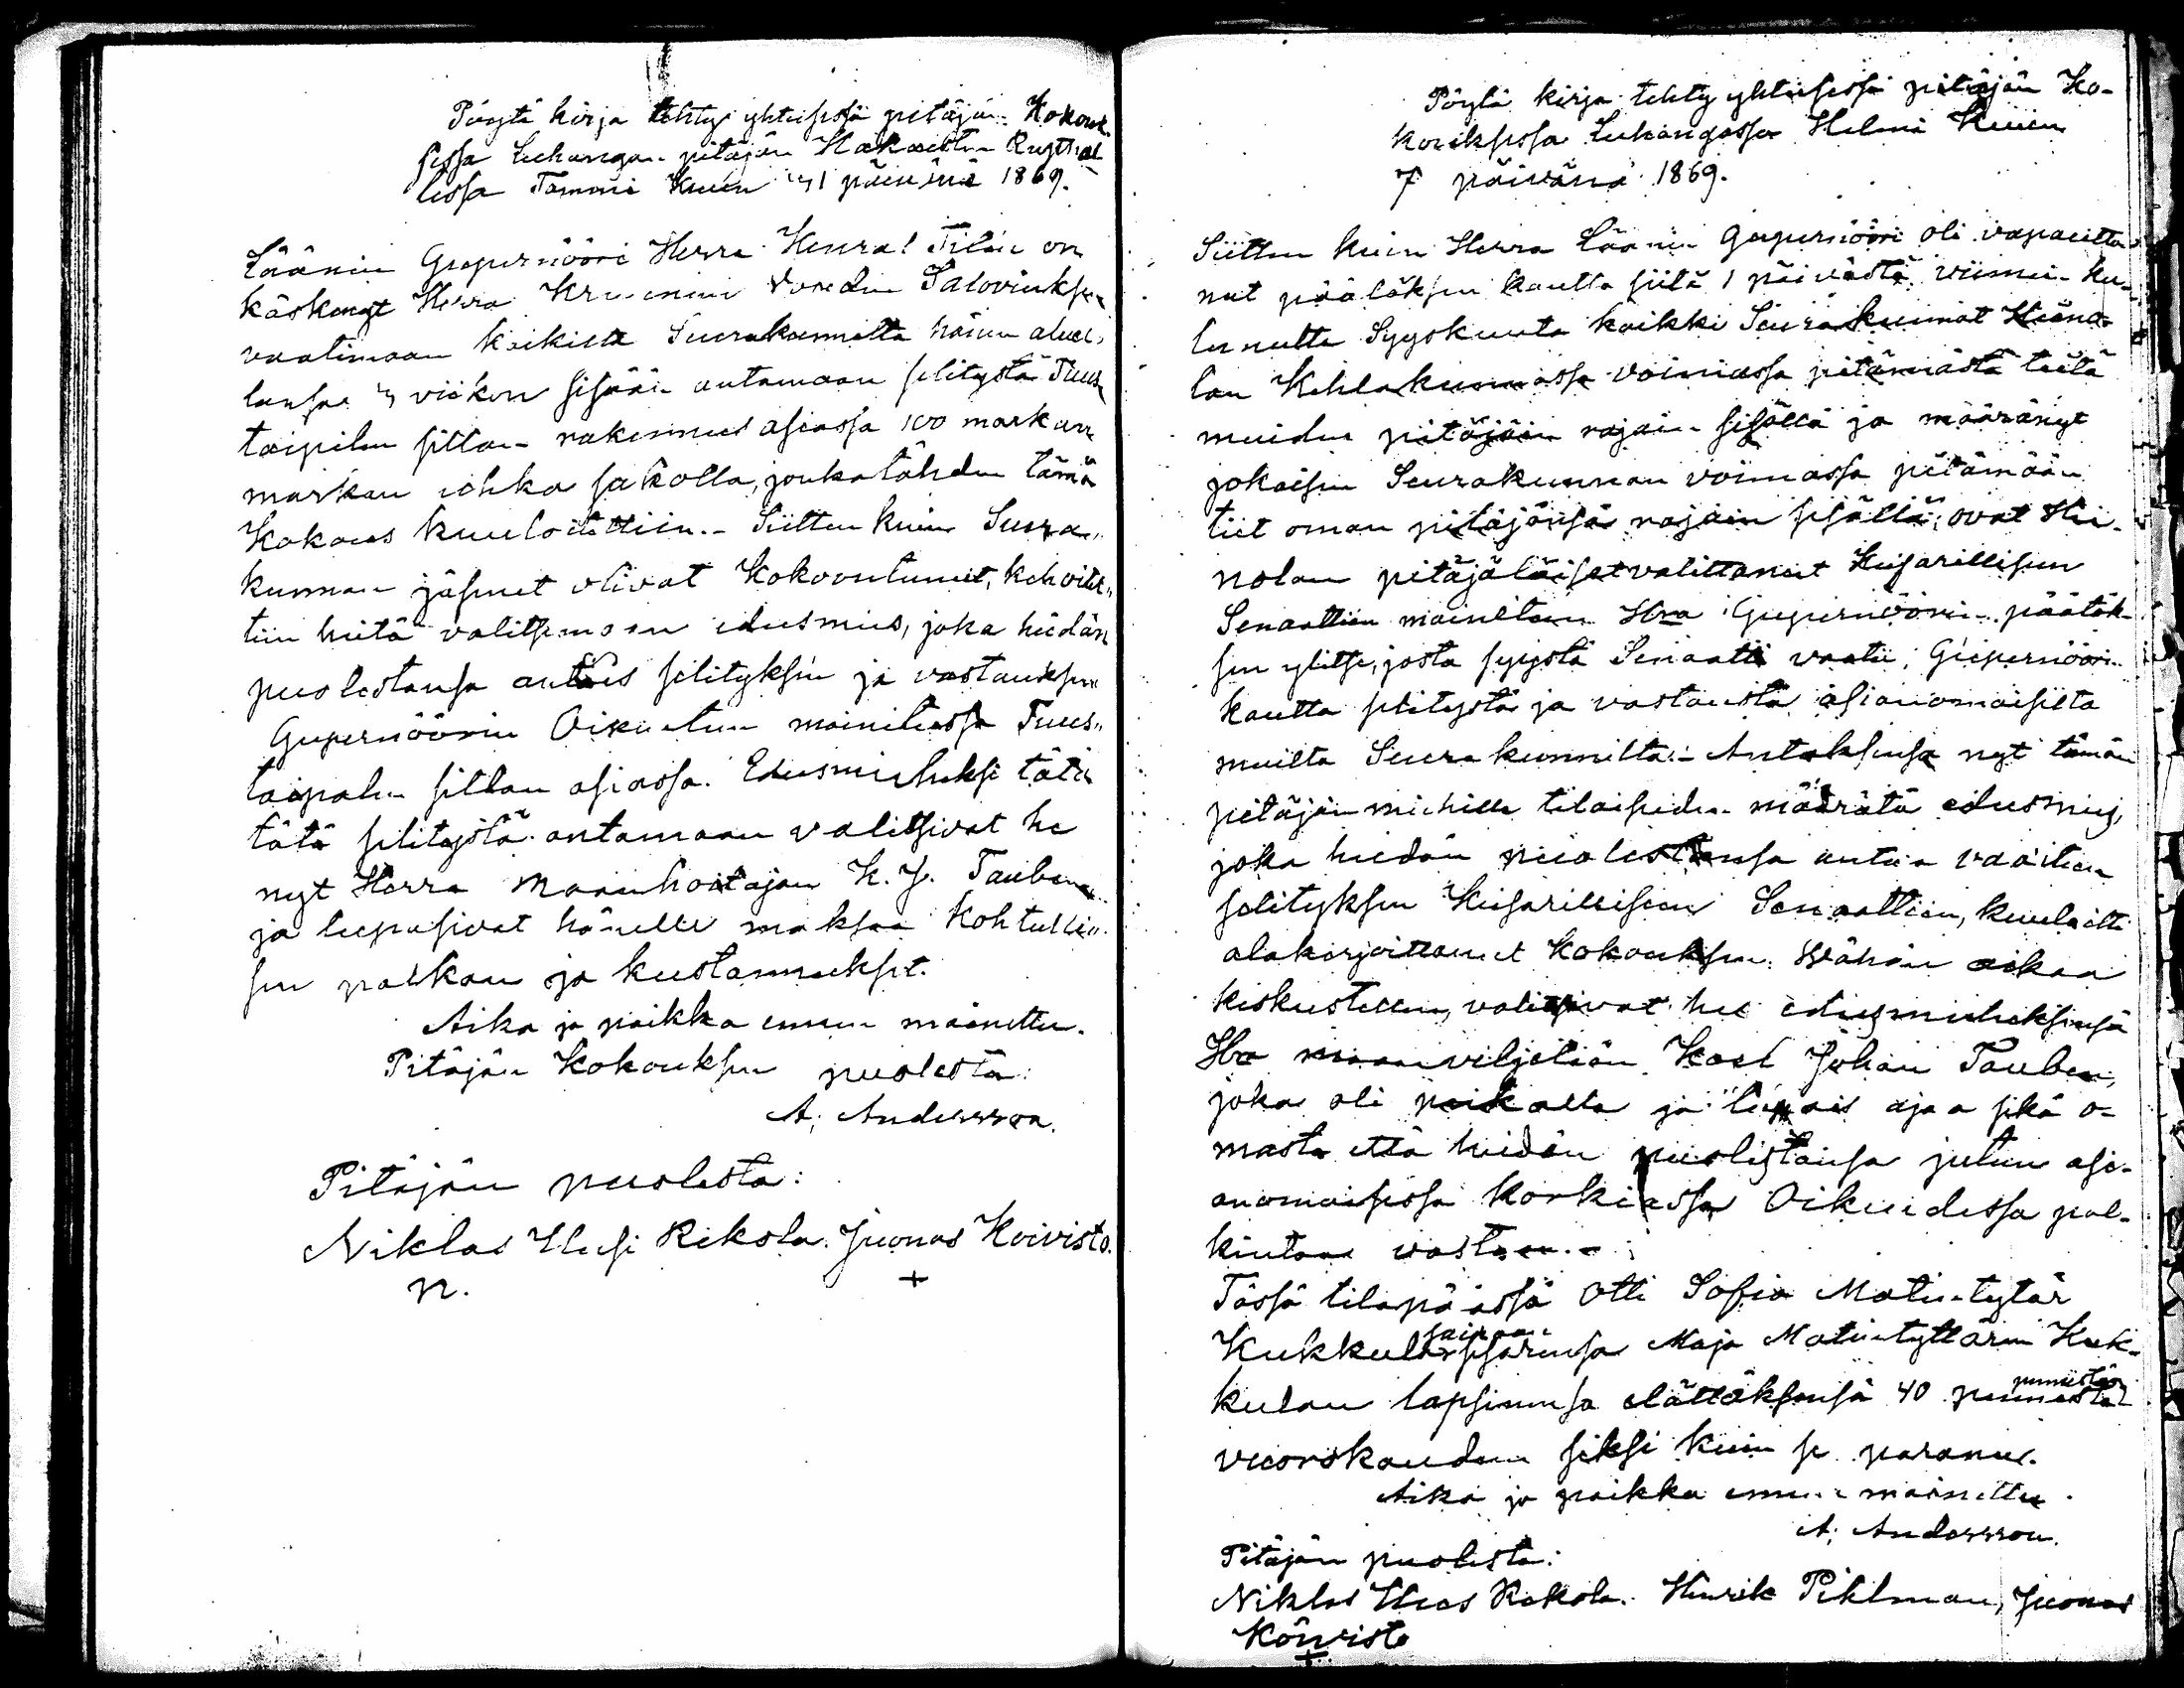 Pöytä kirja tehty yhteisessä pitäjän Kokouk-
sessa Luhangan pitäjän Hakaisten Rusthol
lissa Tammi Kuun 31 päivänä 1869.
Läänin Gupernööri Herra Kenral Tilén on
käskenyt Herra Kruunun Voudin Saloviuksen
vaatimaan kaikista Seurakunnilta hänen aluel-
lansa 3 viikon sisään antamaan selitystä Tuus
taipalen sillan rakennus asiassa 100 markan
markan uhka sakolla, jonkatähden tämä
Kokous kuuloitettiin.- Siitten kuin Seura-
kunnan jäsenet olivat Kokoontunut, kehoitet-
tiin heitä valitsemaan edusmies, joka heidän
puolestansa antais selityksen ja vastauksen
Gupernöörin Oikeuteen mainitussa Tuus-
taipalen sillan asiassa. Edusmieheksi tätä
tätä selitystä antamaan valitsivat he
nyt Herra Maanhoitajan K. J. Tauben
ja lupasivat hänelle maksaa Kohtulli-
sen palkan ja kustannukset.
Aika ja paikka ennen mainittu.
Pitäjän Kokouksen puolesta:
A. Andersson.
Pitäjän puolesta:
Niklas Uusi Kekola. Juonas Koivisto.
n. +
Pöytä kirja tehty yhteisessä pitäjän Ko-
kouksessa Luhangassa Helmi Kuun
7 päivänä 1869.
Siitten kuin Herra Läänin Gupernööri oli vapautta-
nut päätöksen kautta siitä 1 päivästä viimein ku-
lunutta Syyskuuta kaikki Seurakunnat Heino-
lan Kihlakunnassa voimassa pitämästä teitä
muiden pitäjäin rajain sisällä ja määrännyt
jokaisen Seurakunnan voimassa pitämään
tiet oman pitäjänsä rajain sisällä; ovat Hei-
nolan pitäjäläiset valittanut Keisarillisen
Senaattiin mainitun Hra Gupernöörin päätök-
sen ylitse, josta syystä Senaatti vaatii, Gupernöörin
kautta selitystä ja vastausta asianomaisilta
muilta Seurakunnilta.- Antaksensa nyt tämän
pitäjän miehille tilaisuden määrätä edusmies,
joka heidän puolestansa antaa vaaditun
selityksen Keisarilliseen Senaattiin, kuuloitti
alakirjoittanut Kokouksen. Vähän aikaa
keskustellen, valitsivat he edusmieheksensä
Hra maanviljeliän Karl Johan Tauben,
joka oli paikalla ja lupais ajaa sekä o-
masta että heidän puolestansa jutun asi-
anomaisessa korkiassa Oikeudessa pal-
kintoa vastaan.-
Tässä tilapäässä otti Sofia Matintytär
Kukkula sairaan sisarensa Maja Matintyttären Kuk-
kulan lapsinensa elättäksensä 40 pennistä pennistän
vuorokauden siksi kuin se paranee.
Aika ja paikka ennen mainittu.
A. Andersson.
Pitäjän puolesta:
Niklas Uusi Kekola. Henrik Pihlman, Juonas
Koivisto
+